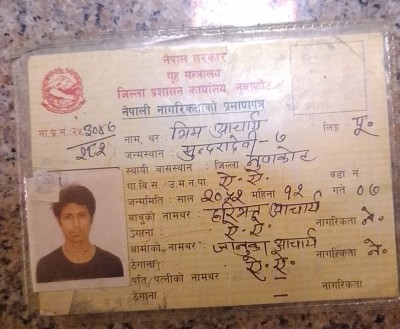 नेपाल सरकार
गृह मन्त्रालय
जिल्ला प्रशासन कार्यालय, नुवाकोट
नेपाली नागरिकताको प्रमाणपत्र
ना.प्र.नं.
नाम, थर : भिम आचार्य लिङ्ग पू.
जन्मस्थान : सुन्दरादेवी-७
स्थायी वासस्थान : जिल्ला नुवाकोट
गा.बि.स./उ.म.न.पा. ऐ. ऐ. वडा नं.
जन्ममिति : साल २०५२ महिना १२ गते ०७
बाबुको नामथर : आचार्य
ठेगाना : ऐ. ऐ. नागरिकता ने.
आमाको नामथर : जानुका आचार्य
ठेगाना : ऐ. ऐ. नागरिकता ने.
पति/पत्नीको नामथर : —
ठेगाना — नागरिकता